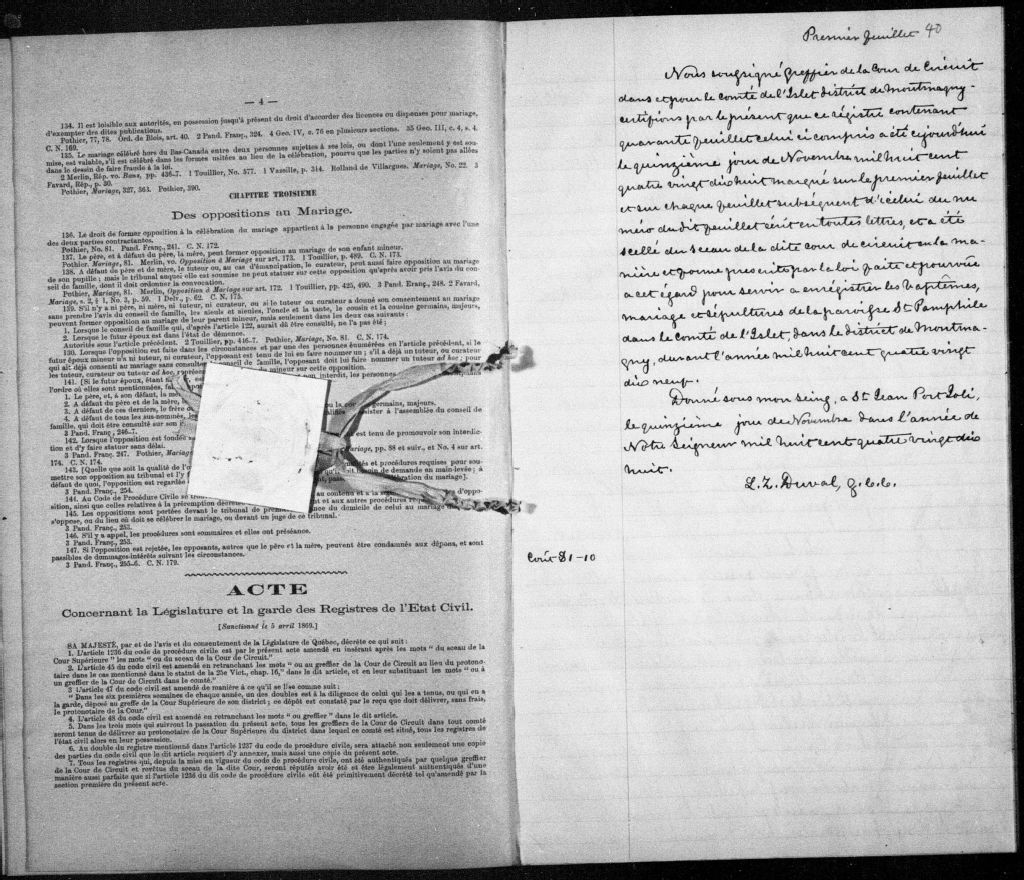 — 4 —
134. Il est loisible aux autorités, en possession jusqu'à présent du droit d'accorder des licences ou dispenses pour mariage,
d'exempter des dites publications.
Pothier, 77, 78. Ord. de Blois, art. 40. 2 Pand. Franç., 324. 4 Geo. IV, c. 76 en plusieurs sections. 35 Geo. III, c. 4, s. 4.
C. N. 169.
135. Le mariage célébré hors du Bas-Canada entre deux personnes sujettes à ses lois, ou dont l'une seulement y est sou-
mise, est valable, s'il est célébré dans les formes usitées au lieu de la célébration, pourvu que les parties n'y soient pas allées
dans le dessein de faire fraude à la loi.
2 Merlin, Rép. vo. Bans, pp. 436-7. 1 Toullier, No. 577. 1 Vazille, p. 314. Rolland de Villargues, Mariage, No. 22. 3
Favard, Rép., p. 30.
Pothier, Mariage, 327, 363. Pothier, 390.
CHAPITRE TROISIEME
Des oppositions au Mariage.
136. Le droit de former opposition à la célébration du mariage appartient à la personne engagée par mariage avec l'une
des deux parties contractantes.
Pothier, No. 81. Pand. Franç., 241. C. N. 172.
137. Le père, et à défaut du père, la mère, peut former opposition au mariage de son enfant mineur.
Pothier, Mariage, 81. Merlin, vo. Opposition à Mariage sur art. 173. 1 Toullier, p. 489. C. N. 173.
138. A défaut de père et de mère, le tuteur ou, au cas d'émancipation, le curateur, peut aussi faire opposition au mariage
de son pupille; mais le tribunal auquel elle est soumise ne peut statuer sur cette opposition qu'après avoir pris l'avis du con-
seil de famille, dont il doit ordonner la convocation.
Pothier, Mariage, 81. Merlin, Opposition à Mariage sur art. 172. 1 Toullier, pp. 425, 490. 3 Pand. Franç., 248. 2 Favard,
Mariage, s. 2, § 1, No. 3, p. 59. 1 Delv., p. 62. C. N. 175.
139. S'il n'y a ni père, ni mère, ni tuteur, ni curateur, ou si le tuteur ou curateur a donné son consentement au mariage
sans prendre l'avis du conseil de famille, les aïeuls et aïeules, l'oncle et la tante, le cousin et la cousine germains, majeurs,
peuvent former opposition au mariage de leur parent mineur, mais seulement dans les deux cas suivants:
1. Lorsque le conseil de famille qui, d'après l'article 122, aurait dû être consulté, ne l'a pas été;
2. Lorsque le futur époux est dans l'état de démence.
Autorités sous l'article précédent. 2 Toullier, pp. 416-7. Pothier, Mariage, No. 81. C. N. 174.
130. Lorsque l'opposition est faite dans les circonstances et par une des personnes énumérées en l'article précédent, si le
futur époux mineur n'a ni tuteur, ni curateur, l'opposant est tenu de lui en faire nommer un; s'il a déjà un tuteur, ou curateur
qui ait déjà consenti au mariage sans consulter conseil de famille, l'opposant doit lui faire nommer un tuteur ad hoc; pour
les tuteur, curateur ou tuteur ad hoc, mineur sur cette opposition.
141. [Si le futur époux, étant interdit, les personnes
l'ordre où elles sont mentionnées,
1. Le père, et, à son défaut, la
2. A défaut du père et de la mère, germains, majeurs.
3. A défaut de ces derniers, le frère assister à l'assemblée du conseil de
4. A défaut de tous les sus-nommés,
famille, qui doit être consulté sur son
3 Pand. Franç., 246-7.
142. Lorsque l'opposition est fondée est tenu de promouvoir son interdic-
tion et d'y faire statuer sans délai.
3 Pand. Franç. 247. Pothier, Mariage Mariage, pp. 88 et suiv., et No. 4 sur art.
174. C. N. 174.
143. [Quelle que soit la qualité de et procédures requises pour sou-
mettre son opposition au tribunal et besoin de demande en main-levée; à
défaut de quoi, l'opposition est regardée célébration du mariage].
3 Pand. Franç., 254.
144. Au Code de Procédure Civile se au contenu et à la d'oppo-
sition, ainsi que celles relatives à la péremption et aux autres procédures
145. Les oppositions sont portées devant le tribunal de du domicile de celui au mariage
s'oppose, ou du lieu où doit se célébrer le mariage, ou devant un juge de ce tribunal.
3 Pand. Franç., 253.
146. S'il y a appel, les procédures sont sommaires et elles ont préséance.
3 Pand. Franç., 253.
147. Si l'opposition est rejetée, les opposants, autres que le père et la mère, peuvent être condamnés aux dépens, et sont
passibles de dommages-intérêts suivant les circonstances.
3 Pand. Franç., 255-6. C. N. 179.
ACTE
Concernant la Législature et la garde des Registres de l'Etat Civil.
[Sanctionné le 5 avril 1869.]
SA MAJESTÉ, par et de l'avis et du consentement de la Législature de Québec, décrète ce qui suit:
1. L'article 1236 du code de procédure civile est par le présent acte amendé en insérant après les mots " du sceau de la
Cour Supérieure " les mots " ou du sceau de la Cour de Circuit."
2. L'article 45 du code civil est amendé en retranchant les mots " ou au greffier de la Cour de Circuit au lieu du protono-
taire dans le cas mentionné dans le statut de la 25e Vict., chap. 16," dans le dit article, et en leur substituant les mots " ou à
un greffier de la Cour de Circuit dans le comté."
3 L'article 47 du code civil est amendé de manière à ce qu'il se lise comme suit:
" Dans les six premières semaines de chaque année, un des doubles est à la diligence de celui qui les a tenus, ou qui en a
la garde, déposé au greffe de la Cour Supérieure de son district; ce dépôt est constaté par le reçu que doit délivrer, sans frais,
le protonotaire de la Cour."
4. L'article 48 du code civil est amendé en retranchant les mots " ou greffier " dans le dit article.
5. Dans les trois mois qui suivront la passation du présent acte, tous les greffiers de la Cour de Circuit dans tout comté
seront tenus de délivrer au protonotaire de la Cour Supérieure du district dans lequel ce comté est situé, tous les registres de
l'état civil alors en leur possession.
6. Au double du registre mentionné dans l'article 1237 du code de procédure civile, sera attaché non seulement une copie
des parties du code civil que le dit article requiert d'y annexer, mais aussi une copie du présent acte.
7. Tous les registres qui, depuis la mise en vigueur du code de procédure civile, ont été authentiqués par quelque greffier
de la Cour de Circuit et revêtus du sceau de la dite Cour, seront réputés avoir été et être légalement authentiqués d'une
manière aussi parfaite que si l'article 1236 du dit code de procédure civile eût été primitivement décrété tel qu'amendé par la
section première du présent acte.
Premier feuillet 40
Nous soussigné Greffier de la Cour de Circuit
dans et pour le comté de l'Islet district de Montmagny
certifions par le présent que ce régistre contenant
quarante feuillet celui ci compris a été ejourdhui
le quinzième jour de Novembre mil huit cent
quatre vingt dix huit marqué sur le premier feuillet
et sur chaque feuillet subséquent d'icelui du nu
méro du dit feuillet écrit en toutes lettres, et a été
scellé du sceau de la dite cour de circuit en la ma-
nière et forme prescrite par la loi faite et pourvue
a cet égard pour servir a enrégistrer les baptêmes,
mariage et sépultures de la paroisse St Pamphile
dans le Comté de l'Islet, dans le district de Montma-
gny, durant l'année mil huit cent quatre vingt
dix neuf.
Donné sous mon seing, a St Jean Port Joli,
le quinzième jour de Novembre dans l'année de
Notre Seigneur mil huit cent quatre vingt dix
huit.
L. Z. Duval, g.c.c.
Coût $1-10